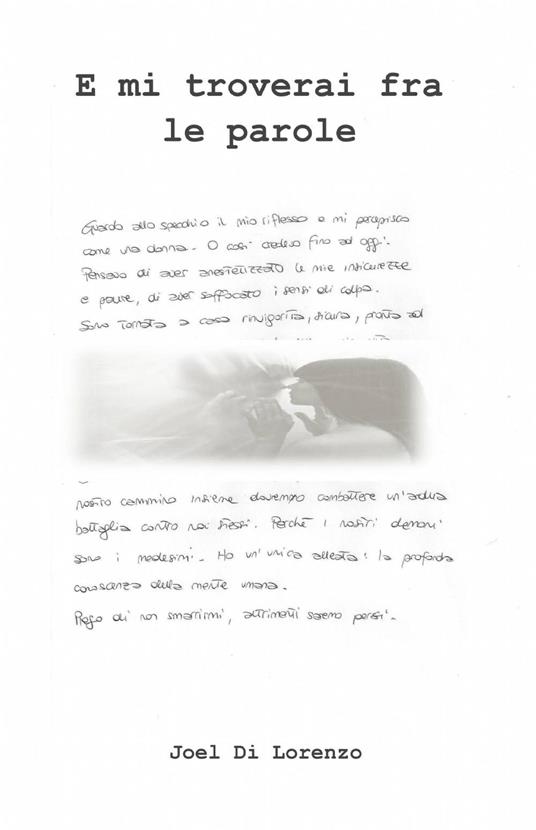 E mi troverai fra
le parole
Guardo allo specchio il mio riflesso e mi percepisco
come una donna. O così credevo fino ad oggi.
Pensavo di aver anestetizzato le mie insicurezze
e paure, di aver soffocato i sensi di colpa.
Sono tornata a casa rinvigorita, sicura, pronta ad
nostro cammino insieme dovremo combattere un'ardua
battaglia contro noi stessi. Perché i nostri demoni
sono i medesimi. Ho un'unica alleata: la profonda
conoscenza della mente umana.
Prego di non smarrirmi, altrimenti saremo persi.
Joel Di Lorenzo